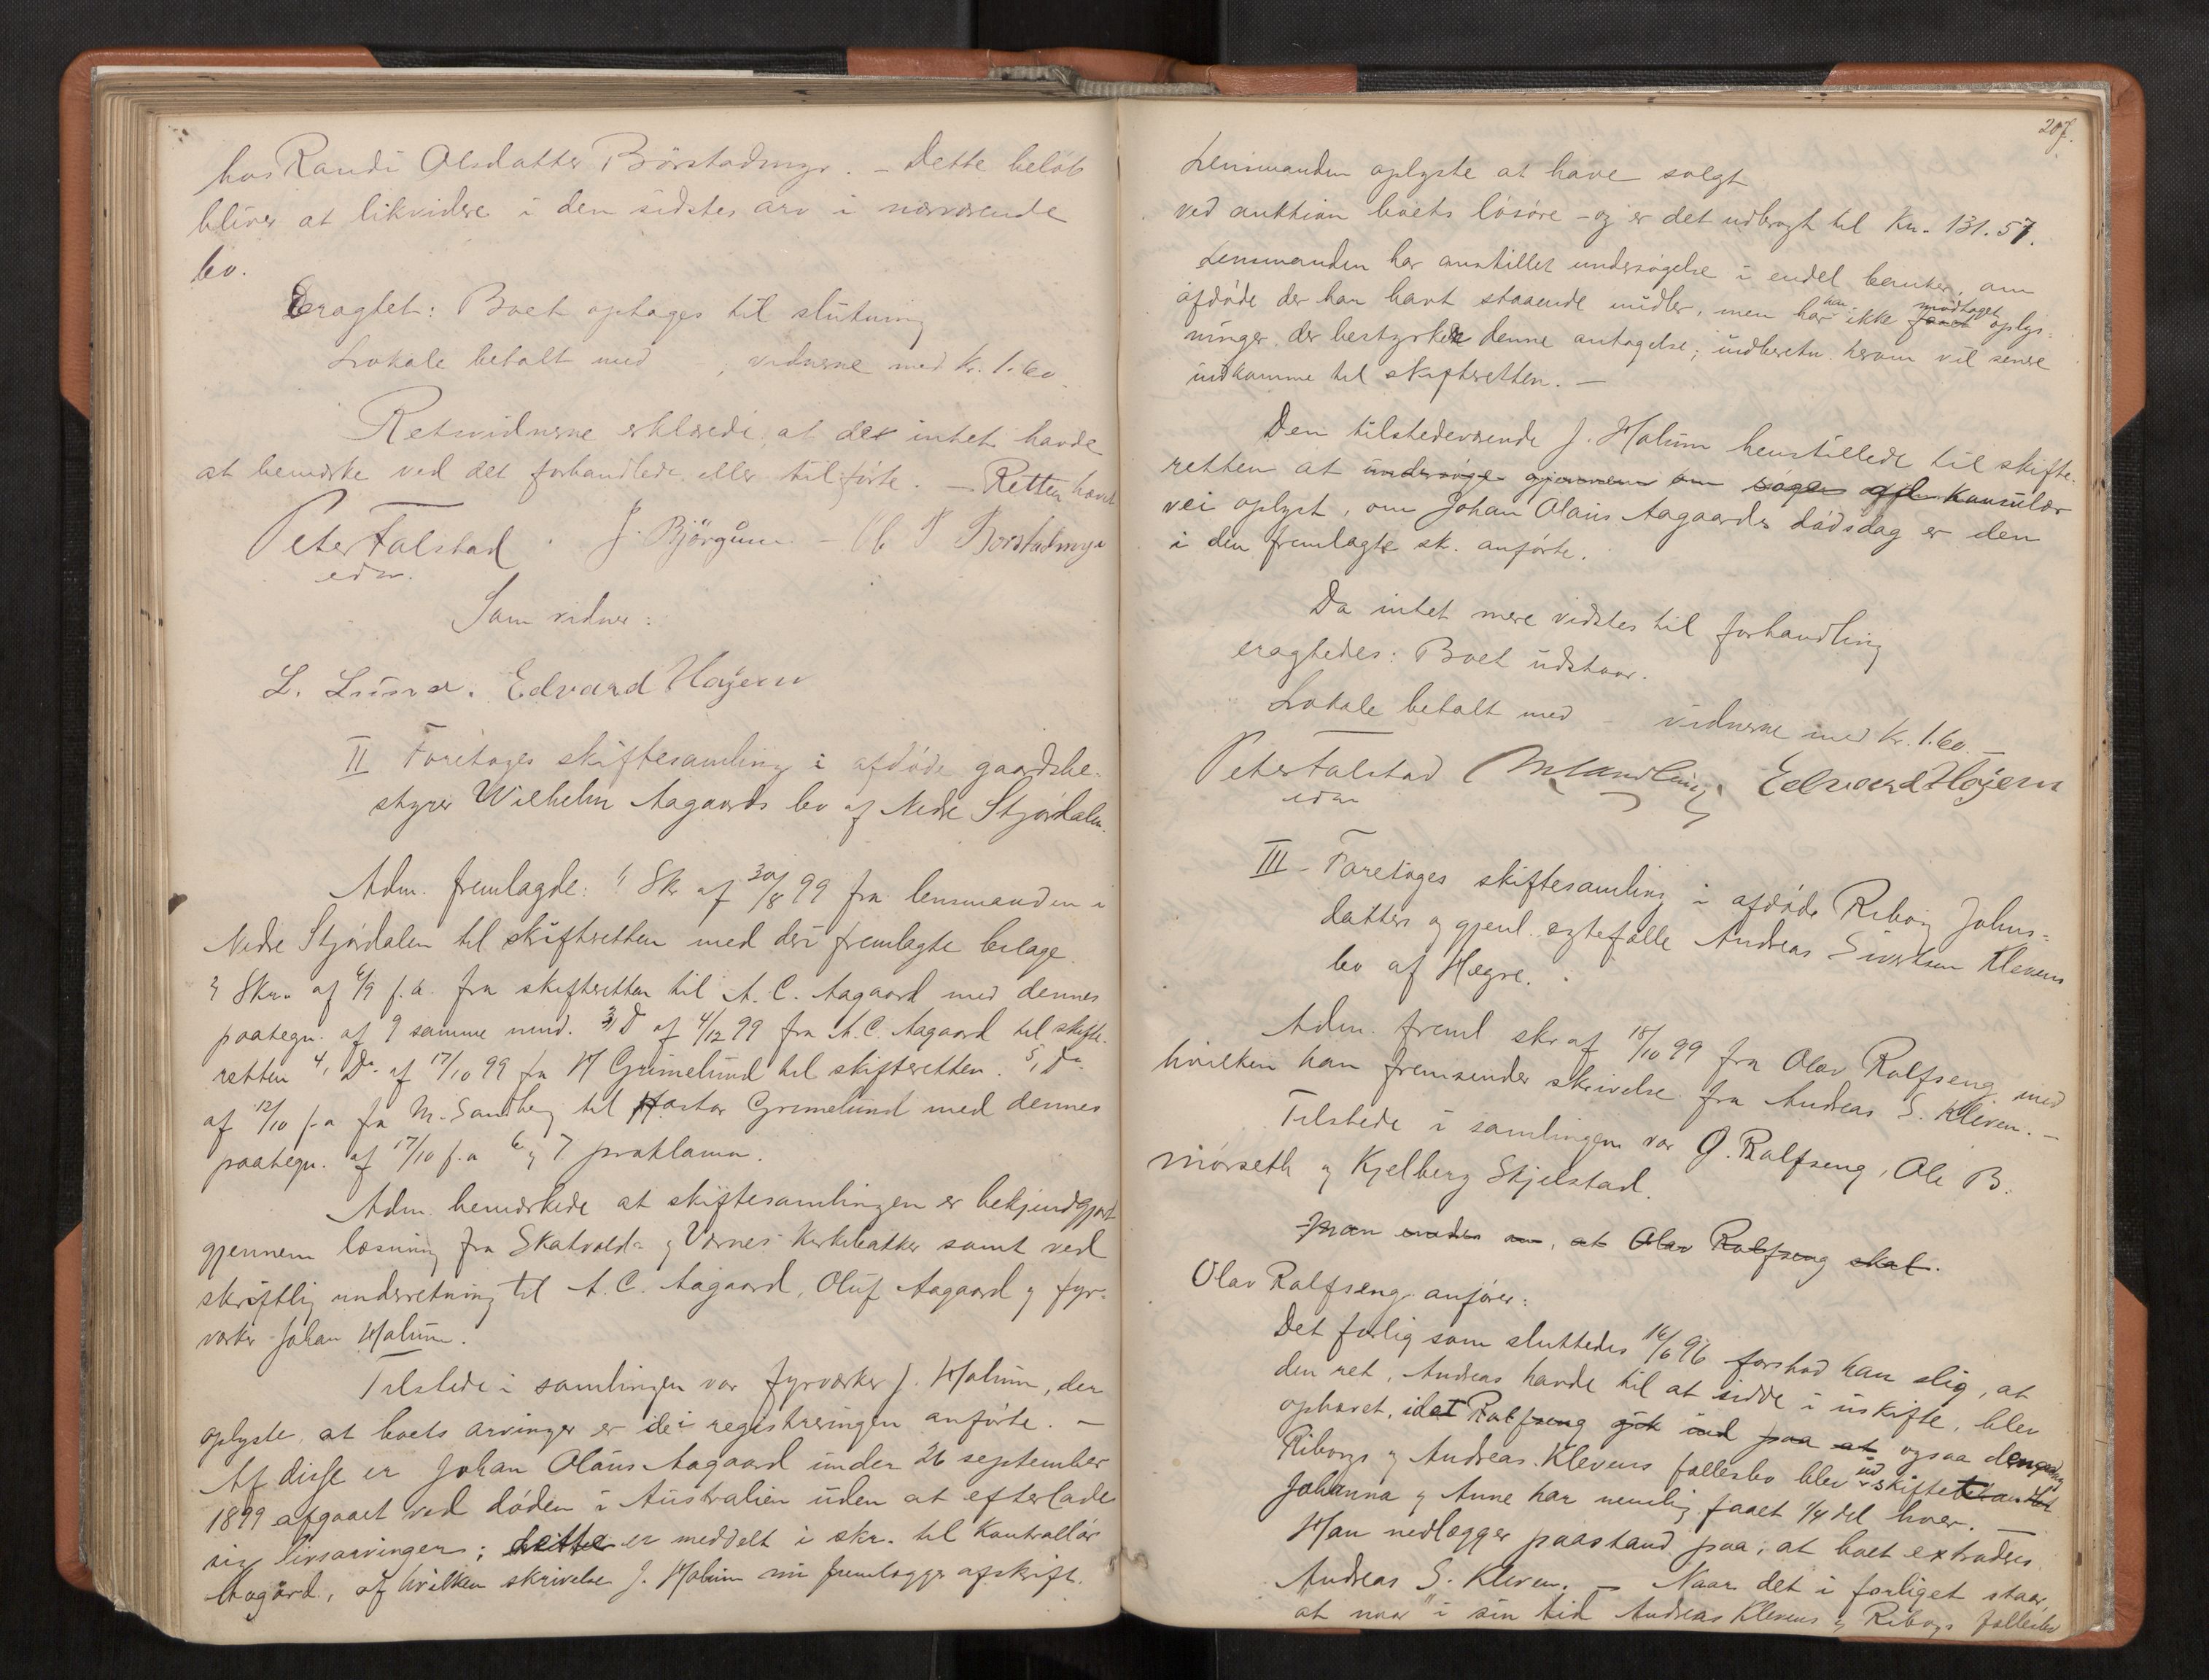 hos Randi Olsdatter Börstadmyr. – Dette belöb
bliver at likvidere i den sidstes arv i nærværende
bo.
Eragtet: Boet optages til slutning
Lokale betalt med , vidnerne med kr. 1.60
Retsvidnerne erklærede, at de intet havde
at bemærke ved det forhandlede eller tilförte. – Retten hævet
Peter Falstad J. Björgum – Ol. P. Borstadmyr
edm.
Som vidner:
L. Lund. Edvard Höjem
II Foretoges skiftesamling i afdöde gaardsbe-
styrer Wilhelm Aagaards bo af Nedre Stjördalen.
Adm. fremlagde: 1, Skr af 30/8 99 fra lensmanden i
Nedre Stjördalen til skifteretten med deri fremlagte bilage.
2, Skr. af 6/9 f.a. fra skifteretten til A. C. Aagaard med dennes
paategn. af 9 samme mnd. 3, D af 4/12 99 fra A. C. Aagaard til skifte-
retten 4, Do. af 17/10 99 fra H Grimelund til skifteretten. 5, Do.
af 12/10 f.a fra M. Sandberg til Pastor Grimelund med dennes
paategn. af 17/10 f.a 6 og 7 proklama.
Adm. bemærkede at skiftesamlingen er bekjendtgjort
gjennem læsning fra Skatvold- og Værnes kirkebakker samt ved
skriftlig underretning til A. C. Aagaard, Oluf Aagaard og fyr-
værker Johan Halum.
Tilstede i samlingen var fyrværker J. Halum, der
oplyste, at boets arvinger er de i registreringen anförte. –
Af disse er Johan Olaus Aagaard under 26 september
1899 afgaaet ved döden i Australien uden at efterlade
sig livsarvinger; dette er meddelt i skr. til Kontrollör
Aagard, af hvilken skrivelse J. Halum nu fremlægger afskrift.
207.
Lensmanden oplyste at have solgt
ved auktion boets lösöre – og er det udbragt til Kr. 131.57.
Lensmanden har anstillet undersögelse i endel banker, om
afdöde der har havt staaende midler, men har han ikke faaet modtaget oplys-
ninger, der bestyrker denne antagelse; indberetn. herom vil senere
indkomme til skifteretten. –
Den tilstedeværende J. Halum henstillede til skifte-
retten at undersöge gjennem om söges ad konsulær
vei oplyst, om Johan Olaus Aagaards dödsdag er den
i den fremlagte sk. anförte.
Da intet mere vidstes til forhandling
eragtedes: Boet udstaar.
Lokale betalt med – vidnerne med kr. 1.60. –
Peter Falstad Edvard Höjem
edm
III – Foretoges skiftesamling i afdöde Riborg Johns-
datters og gjenl. egtefælle Andreas Sivertsen Klevens
bo af Hegre.
Adm. freml skr af 18/10 99 fra Olav Rolfseng med
hvilken han fremsender skrivelse fra Andreas S. Kleven. –
Tilstede i samlingen var O. Rolfseng, Ole B.
Mörseth og Kjelberg Skjelstad.
Man enedes om, at Olav Rolfseng skal.
Olav Rolfseng anförer:
Det forlig som sluttedes 16/6 96 forstod han slig, at
den ret, Andreas havde til at sidde i uskifte, blev
ophævet, idet Rolfseng gik ind paa at ogsaa
Riborgs og Andreas Klevens fællesbo blev udskiftet
Johanna og Anne har nemlig faaet 1/4 del hver. –
Han nedlægger paastand paa, at boet extraderes
Andreas S. Kleven. – Naar det i forliget staar,
at naar "i sin tid Andreas Klevens og Riborgs fællesbo